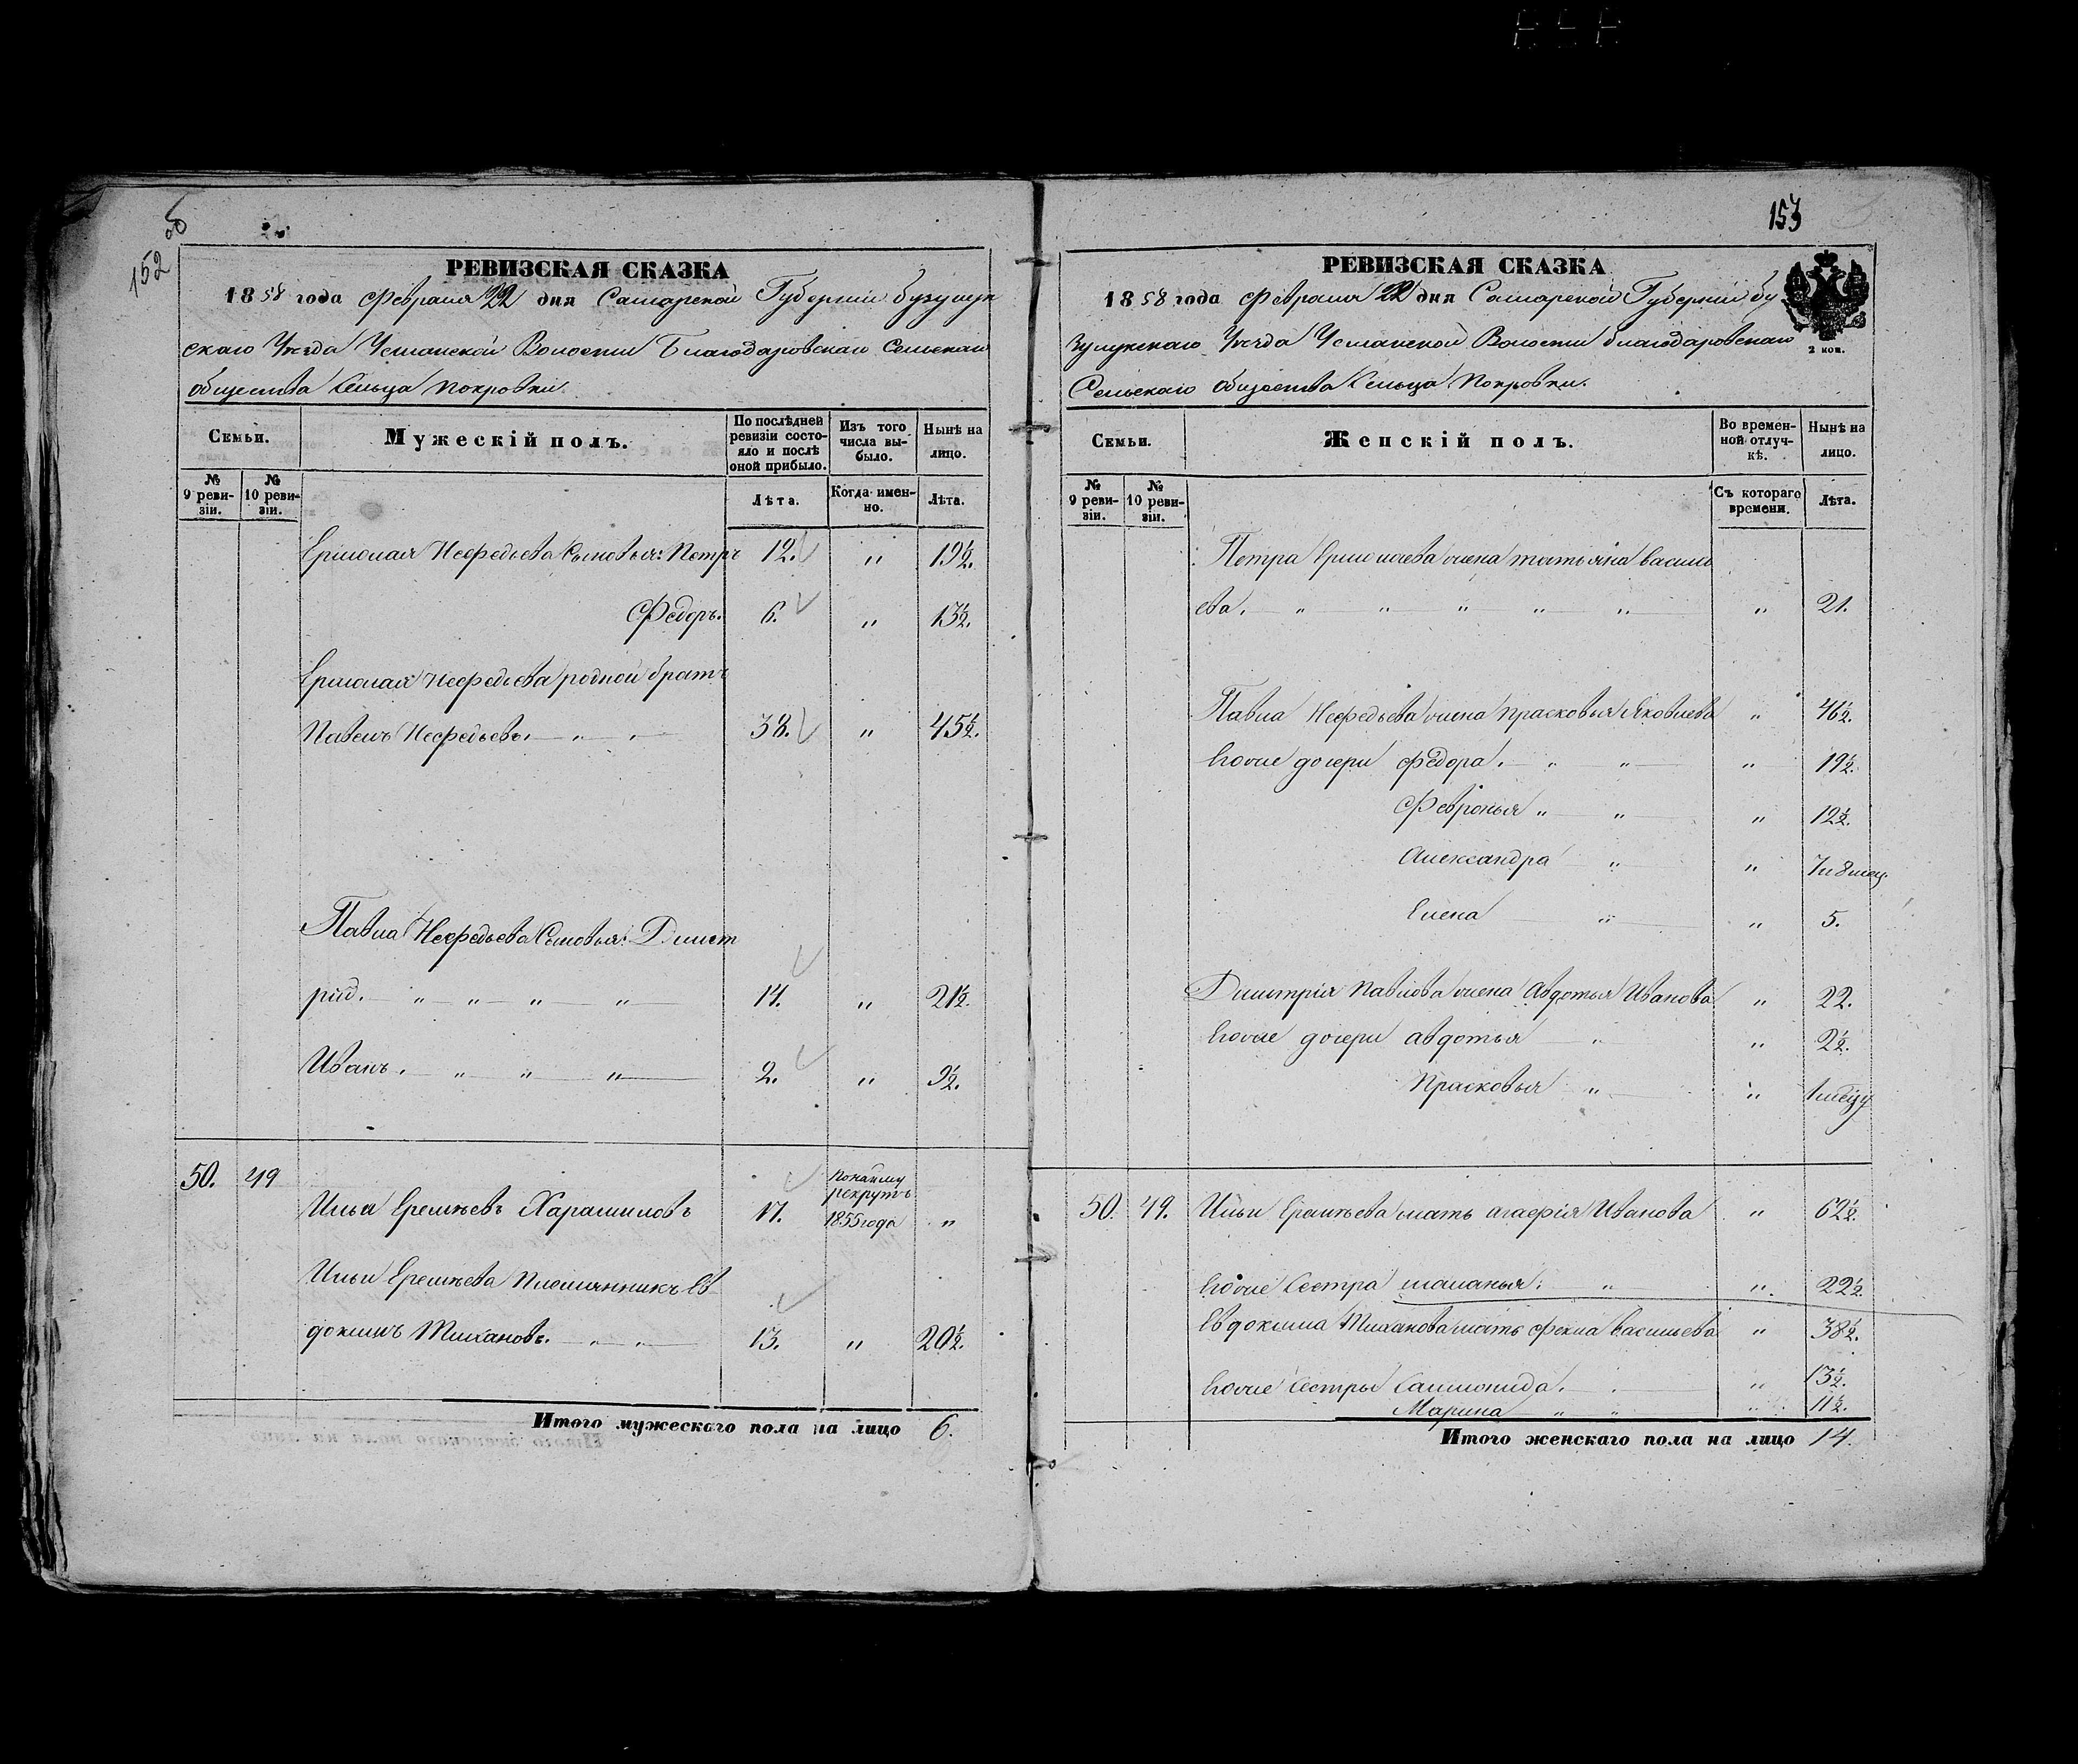 152 об
РЕВИЗСКАЯ СКАЗКА
1858 года Февраля 22 дня Самарской Губернии Бузулук
скаго Уезда Усманской Волости Благодаровскаго Сельскаго
общества Сельца Покровки.
Семьи.
Мужескій полъ.
По послѣдней ревизіи состояло и послѣ оной прибыло.
Изъ того числа выбыло.
Нынѣ на лицо.
№ 9 ревизіи.
№ 10 ревизіи.
Лѣта.
Когда именно.
Лѣта.
Ермолая Нефедьева Сыновья: Петръ 12. „ 19½.
Федоръ. 6. „ 13½.
Ермолая Нефедьева родной братъ
Павелъ Нефедьевъ. „ „ 38. „ 45½.
Павла Нефедьева Сыновья: Димит
рій. „ „ „ „ 14. „ 21½.
Иванъ. „ „ „ 2. „ 9½.
50. 49 Илья Еремѣевъ Харашиловъ 17. По найму рекрутъ 1855 года „
Ильи Еремѣева Племянникъ Ев
докимъ Тихановъ. „ „ 13. „ 20½.
Итого мужескаго пола на лицо 6.
153
РЕВИЗСКАЯ СКАЗКА
1858 года Февраля 22 дня Самарской Губерніи Бу
зулукскаго Уезда Усманской Волости Благодаровскаго
2 коп.
Сельскаго общества Сельца Покровки.
Семьи.
Женскій полъ.
Во временной отлучкѣ.
Нынѣ на лицо.
№ 9 ревизіи.
№ 10 ревизіи.
Съ котораго времени.
Лѣта.
Петра Ермолаева жена Татьяна Василь
ева. „ „ „ „ „ „ 21.
Павла Нефедьева жена Прасковья Яковлева „ 46½.
Егоже дочери Федора. „ „ „ 19½.
Февронья „ „ „ 12½.
Александра „ „ 7 и 8 мец.
Елена „ „ 5.
Димитрія Павлова жена Авдотья Иванова „ 22.
Егоже дочери Авдотья „ „ 2½.
Прасковья „ „ 1 мѣцу
50. 49. Ильи Еремѣева мать Агафія Иванова „ 62½.
Егоже Сестра Маланья. „ „ 22½.
Евдокима Тиханова мать Фекла Васильева „ 38½.
Егоже Сестры Саломонида. „ 13½.
Марина „ „ „ 11½.
Итого женскаго пола на лицо 14.